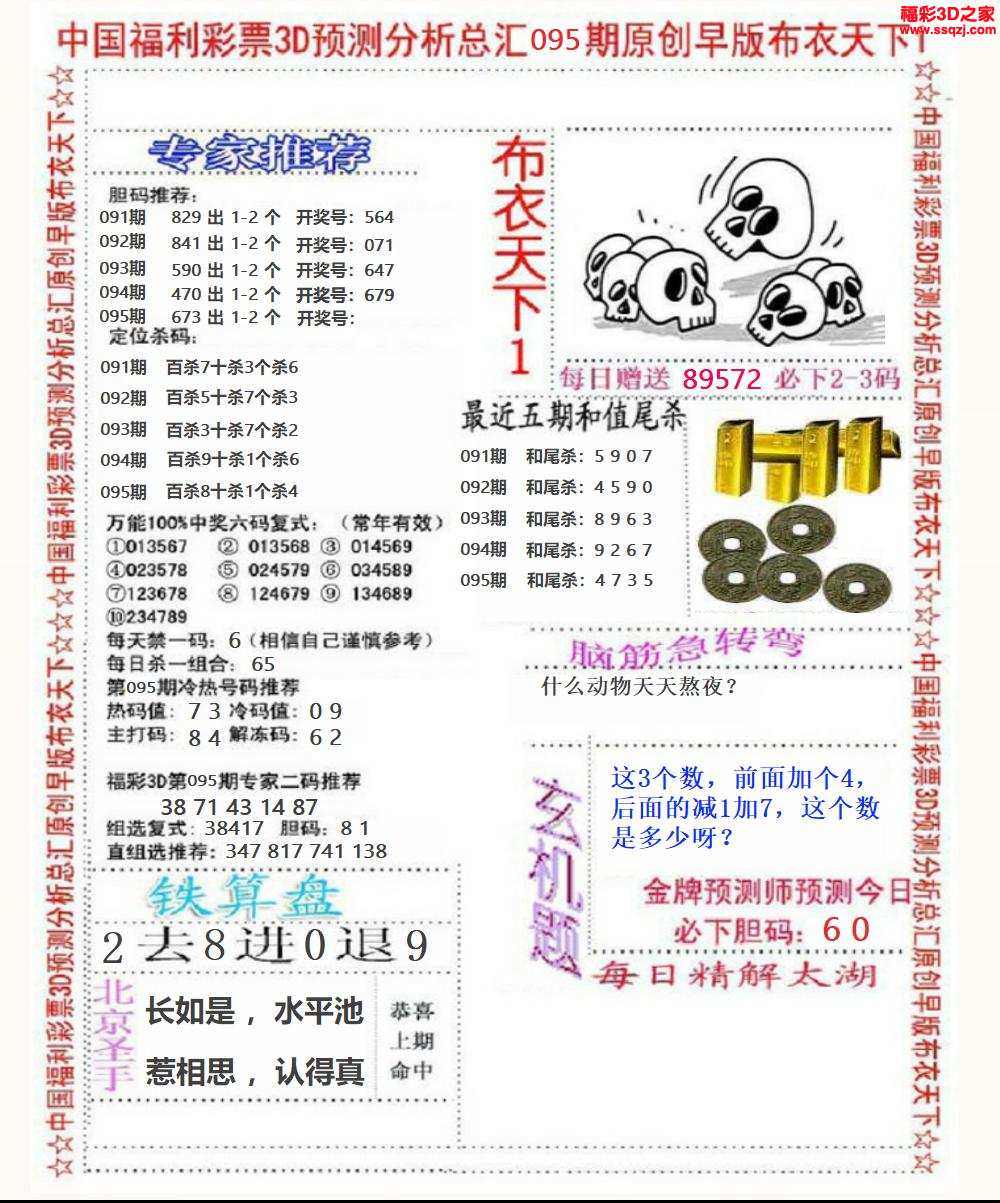 福彩3D之家
www.ssqzj.com
中国福利彩票3D预测分析总汇095期原创早版布衣天下1
☆☆中国福利彩票3D预测分析总汇原创早版布衣天下☆☆中国福利彩票3D预测分析总汇原创早版布衣天下☆☆
专家推荐
胆码推荐:
091期 829 出 1-2 个 开奖号: 564
092期 841 出 1-2 个 开奖号: 071
093期 590 出 1-2 个 开奖号: 647
094期 470 出 1-2 个 开奖号: 679
095期 673 出 1-2 个 开奖号:
定位杀码:
091期 百杀7十杀3个杀6
092期 百杀5十杀7个杀3
093期 百杀3十杀7个杀2
094期 百杀9十杀1个杀6
095期 百杀8十杀1个杀4
万能100%中奖六码复式: (常年有效)
①013567 ② 013568 ③ 014569
④023578 ⑤ 024579 ⑥ 034589
⑦123678 ⑧ 124679 ⑨ 134689
⑩234789
每天禁一码: 6(相信自己谨慎参考)
每日杀一组合: 65
第095期冷热号码推荐
热码值: 7 3 冷码值: 0 9
主打码: 8 4 解冻码: 6 2
福彩3D第095期专家二码推荐
38 71 43 14 87
组选复式: 38417 胆码: 8 1
直组选推荐: 347 817 741 138
铁算盘
2去8进0退9
北京圣手
长如是，水平池
惹相思，认得真
恭喜
上期
命中
布衣天下1
每日赠送 89572 必下2-3码
最近五期和值尾杀
091期 和尾杀: 5 9 0 7
092期 和尾杀: 4 5 9 0
093期 和尾杀: 8 9 6 3
094期 和尾杀: 9 2 6 7
095期 和尾杀: 4 7 3 5
脑筋急转弯
什么动物天天熬夜？
玄机题
这3个数，前面加个4，
后面的减1加7，这个数
是多少呀？
金牌预测师预测今日
必下胆码: 6 0
每日精解太湖
☆☆中国福利彩票3D预测分析总汇原创早版布衣天下☆☆☆中国福利彩票3D预测分析总汇原创早版布衣天下☆☆